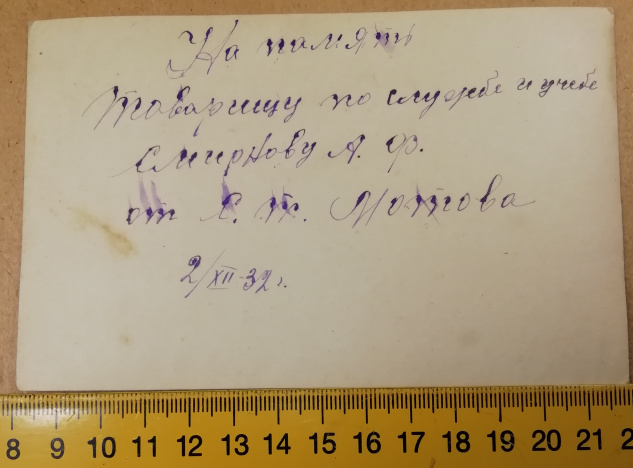 На память
товарищу по службе и учебе
Смирнову А. Ф.
от т. Мотова
2/XII-32 г.
8 9 10 11 12 13 14 15 16 17 18 19 20 21 2